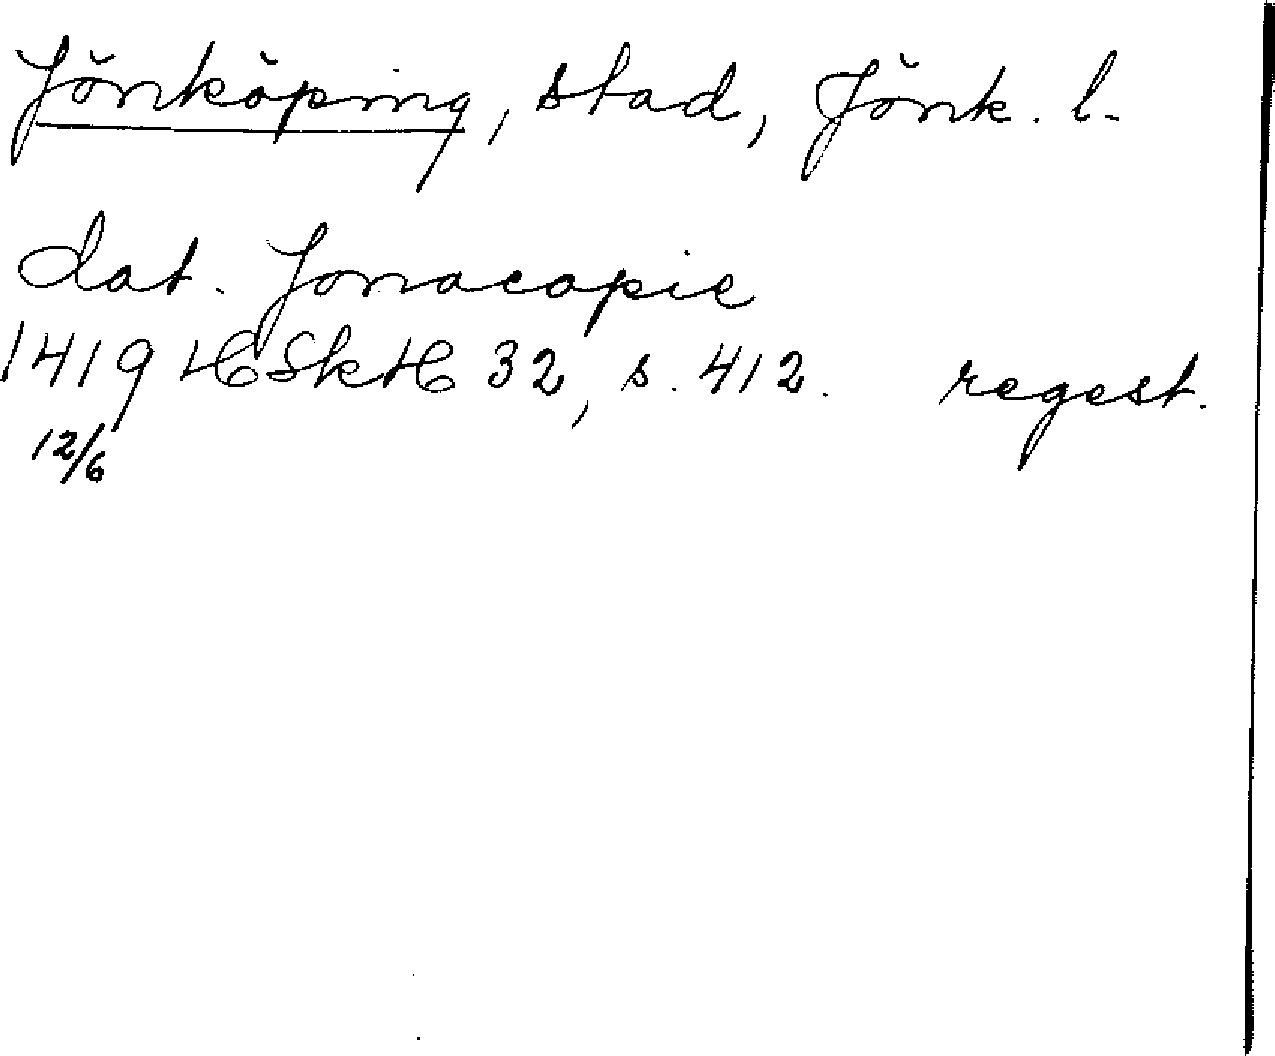 Jönköping, stad, Jönk. l.
dat. Jonacopie
1419 HSkH 32, s. 412. regest.
12/6